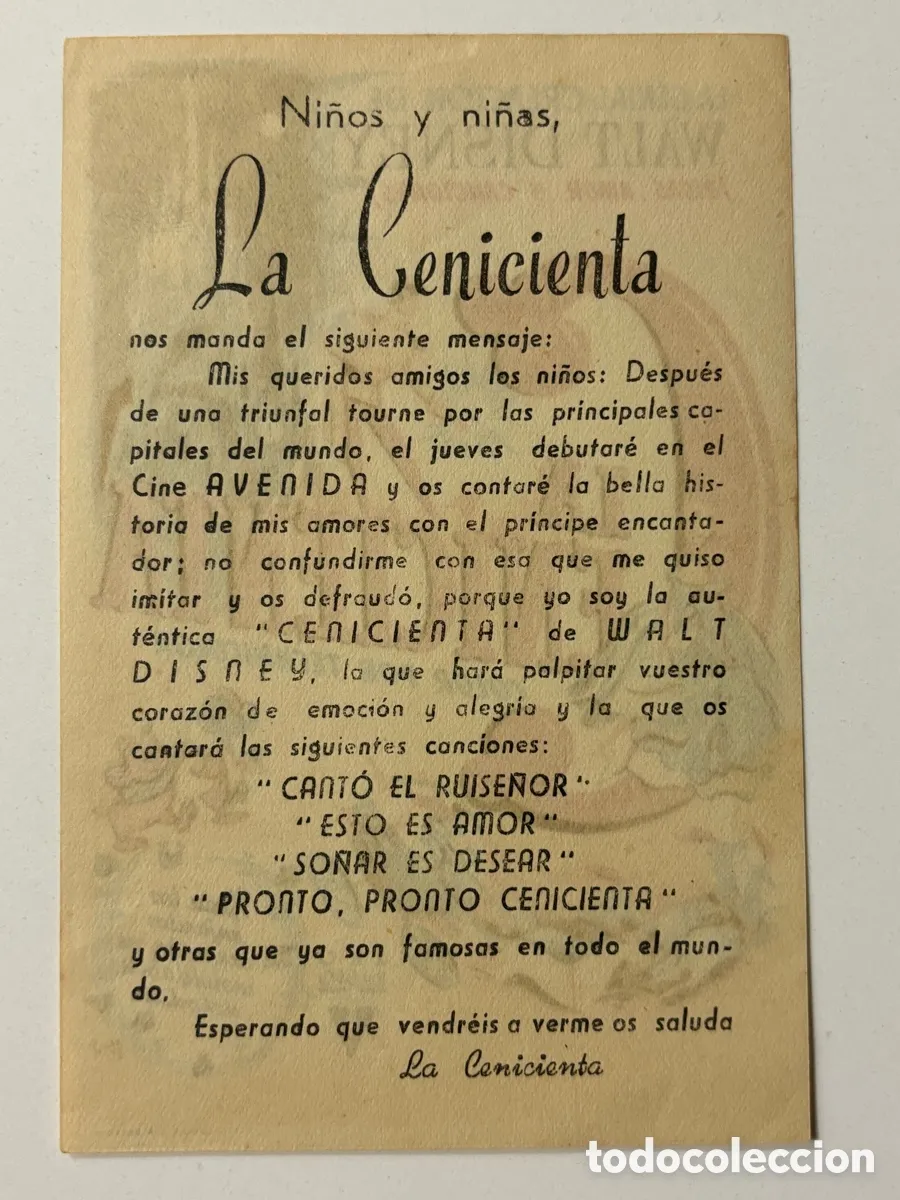 Niños y niñas,
La Cenicienta
nos manda el siguiente mensaje:
Mis queridos amigos los niños: Después
de una triunfal tourne por las principales ca-
pitales del mundo, el jueves debutaré en el
Cine AVENIDA y os contaré la bella his-
toria de mis amores con el príncipe encanta-
dor; no confundirme con esa que me quiso
imitar y os defraudó, porque yo soy la au-
téntica "CENICIENTA" de WALT
DISNEY, la que hará palpitar vuestro
corazón de emoción y alegría y la que os
cantará las siguientes canciones:
"CANTÓ EL RUISEÑOR"
"ESTO ES AMOR"
"SOÑAR ES DESEAR"
"PRONTO, PRONTO CENICIENTA"
y otras que ya son famosas en todo el mun-
do.
Esperando que vendréis a verme os saluda
La Cenicienta
todocoleccion